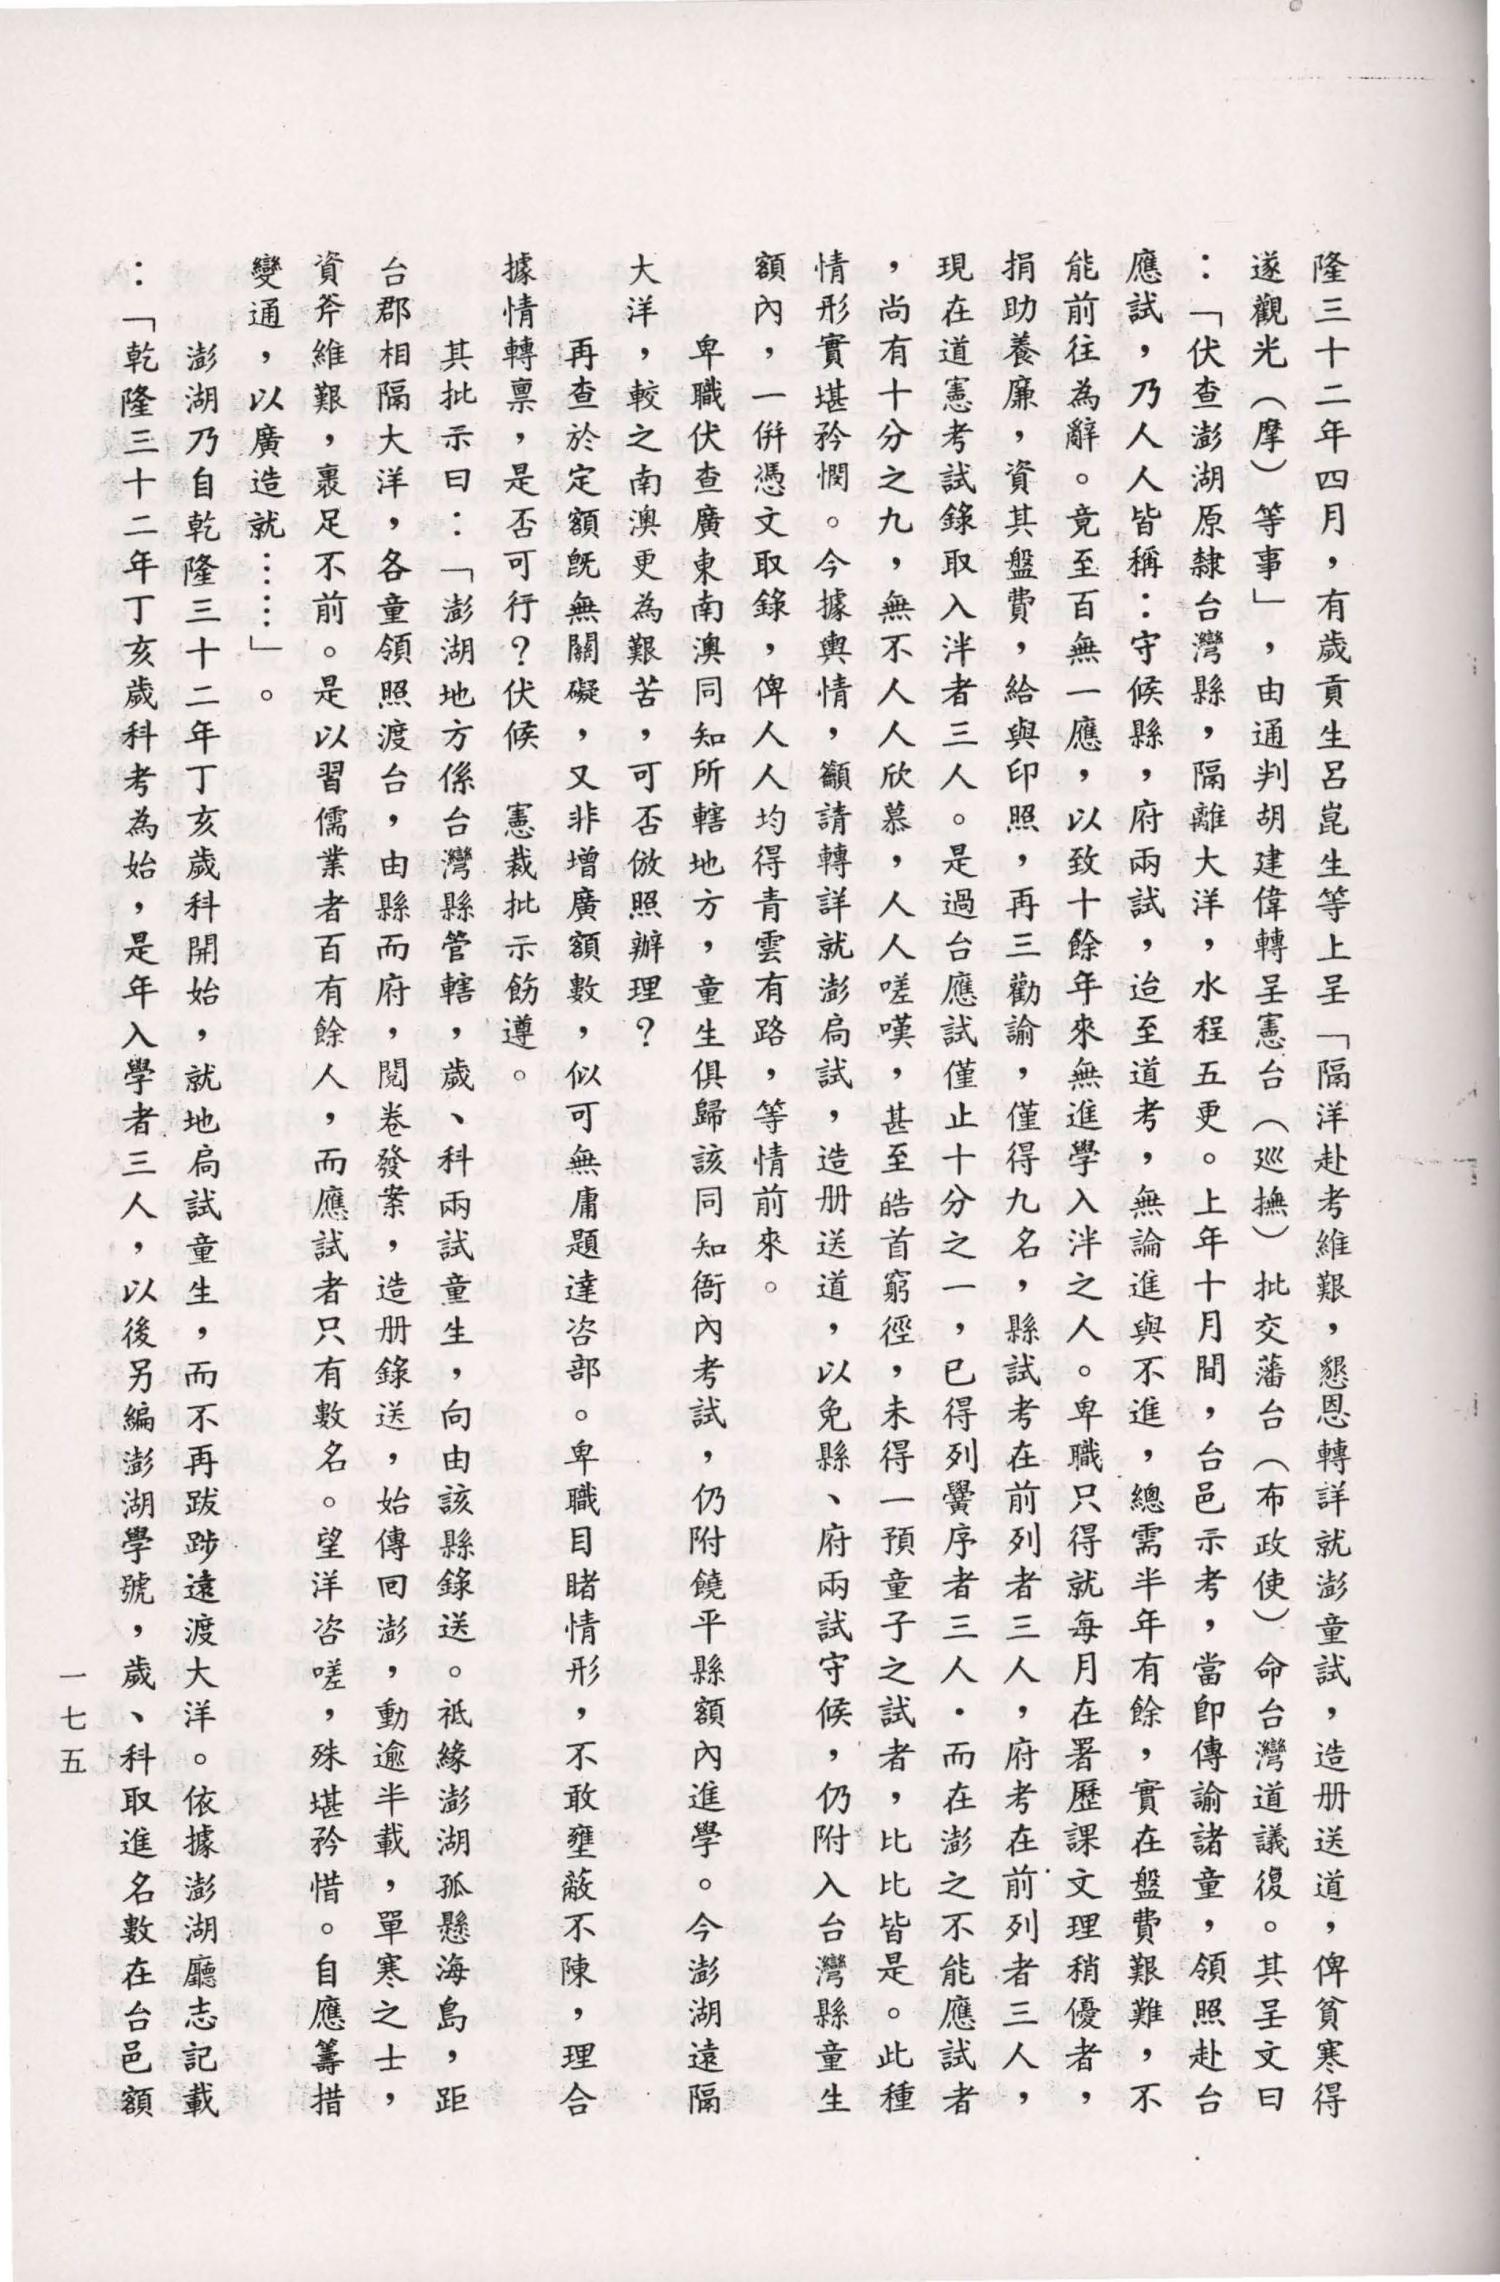 隆三十二年四月，有歲貢生呂崑生等上呈「隔洋赴考維艱，懇恩轉詳就澎童試，造册送道，俾貧寒得
遂觀光（摩）等事」，由通判胡建偉轉呈憲台（巡撫）批交藩台（布政使）命台灣道議復。其呈文曰
：「伏查澎湖原隸台灣縣，隔離大洋，水程五更。上年十月間，台邑示考，當即傳諭諸童，領照赴台
應試，乃人人皆稱：守候縣，府兩試，迨至道考，無論進與不進，總需半年有餘，實在盤費艱難，不
能前往為辭。竟至百無一應，以致十餘年來無進學入泮之人。卑職只得就每月在署歷課文理稍優者，
捐助養廉，資其盤費，給與印照，再三勸諭，僅得九名，縣試考在前列者三人，府考在前列者三人，
現在道憲考試錄取入泮者三人。是過台應試僅止十分之一，已得列黌序者三人．而在澎之不能應試者
，尚有十分之九，無不人人欣慕，人人嗟嘆，甚至皓首窮徑，未得一預童子之試者，比比皆是。此種
情形實堪矜憫。今據輿情，籲請轉詳就澎局試，造册送道，以免縣、府兩試守候，仍附入台灣縣童生
額內，一併憑文取錄，俾人人均得青雲有路，等情前來。
卑職伏查廣東南澳同知所轄地方，童生俱歸該同知衙內考試，仍附饒平縣額內進學。今澎湖遠隔
大洋，較之南澳更為艱苦，可否倣照辦理？
再查於定額既無關礙，又非增廣額數，似可無庸題達咨部。卑職目睹情形，不敢壅蔽不陳，理合
據情轉禀，是否可行？伏候　憲裁批示飭遵。
其批示曰：「澎湖地方係台灣縣管轄，歲、科兩試童生，向由該縣錄送。祗緣澎湖孤懸海島，距
台郡相隔大洋，各童領照渡台，由縣而府，閱卷發案，造册錄送，始傳回澎，動逾半載，單寒之士，
資斧維艱，裹足不前。是以習儒業者百有餘人，而應試者只有數名。望洋咨嗟，殊堪矜惜。自應籌措
變通，以廣造就……」。
澎湖乃自乾隆三十二年丁亥歲科開始，就地局試童生，而不再跋踄遠渡大洋。依據澎湖廳志記載
：「乾隆三十二年丁亥歲科考為始，是年入學者三人，以後另編澎湖學號，歲、科取進名數在台邑額
一七五